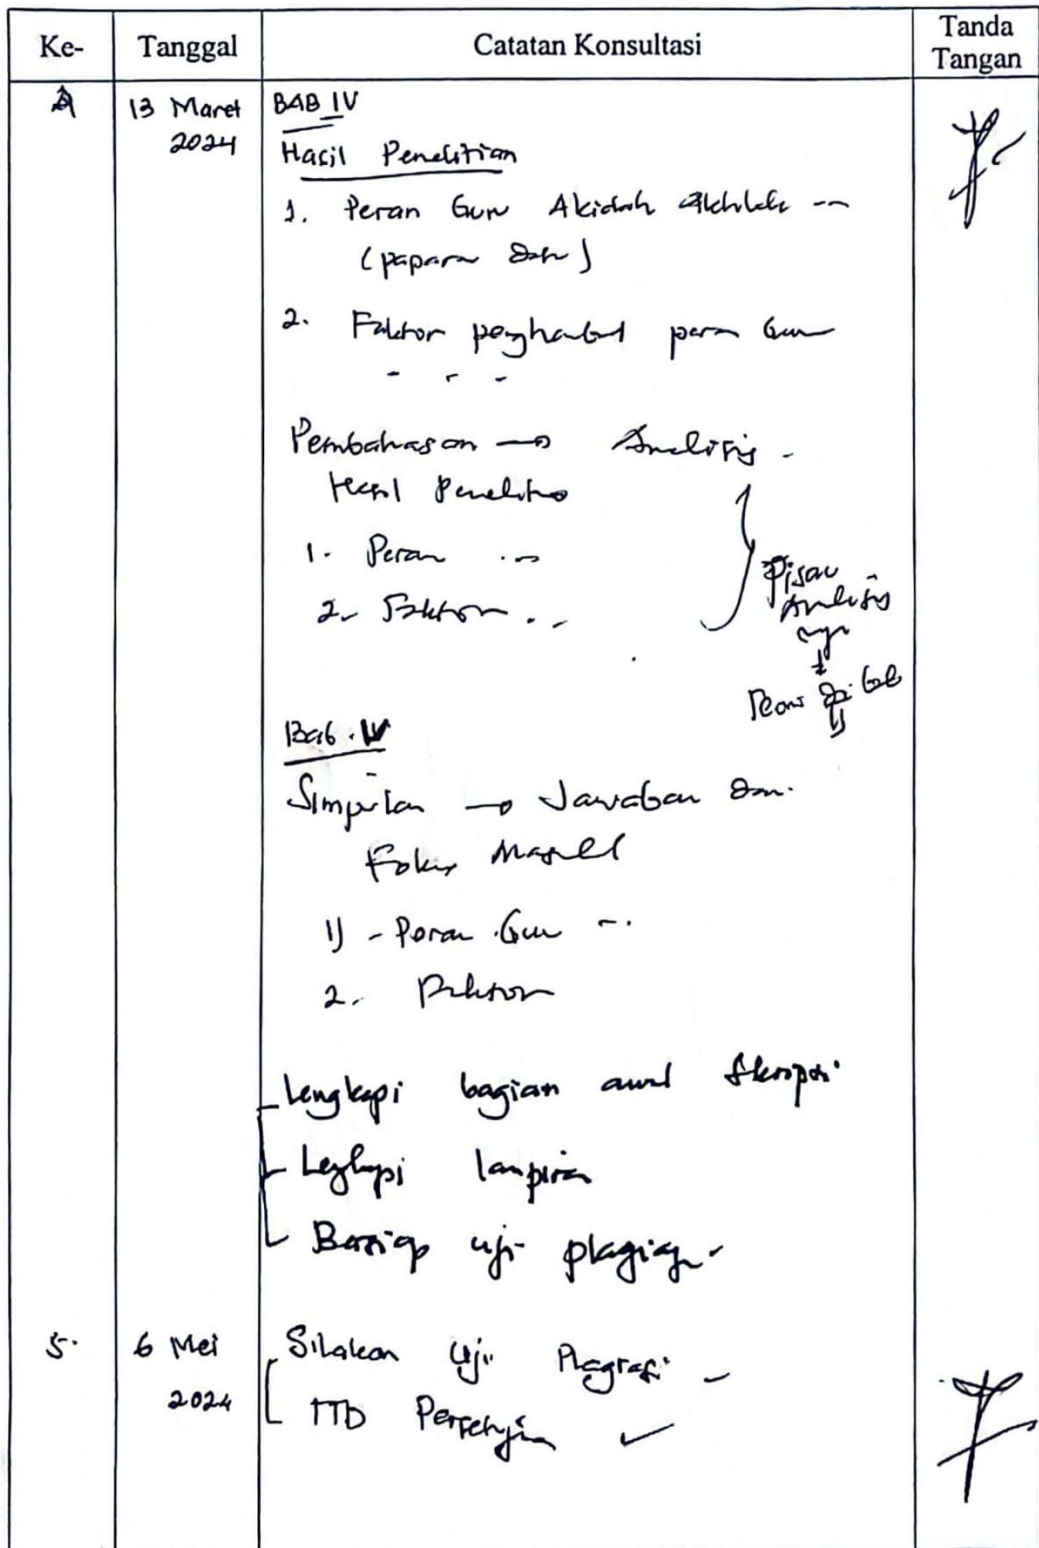 Ke-
Tanggal
Catatan Konsultasi
Tanda
Tangan
13 Maret
2024
BAB IV
Hasil Penelitian
1. Peran Guru Akidah Akhlak
(paparan
2. Faktor para Guru
Pembahasan → Analisis -
Hasil Penelitian
1. Peran ..
2. Faktor ..
Pisau
Analisis
Bab. IV
Simpulan → Jawaban
Fokus
1) - Peran Guru
2. Faktor
- Lengkapi bagian awal skripsi
- Lengkapi lampiran
- uji plagiasi
5.
6 Mei
2024
Silakan uji Plagiasi
TTD Persetujuan ✓